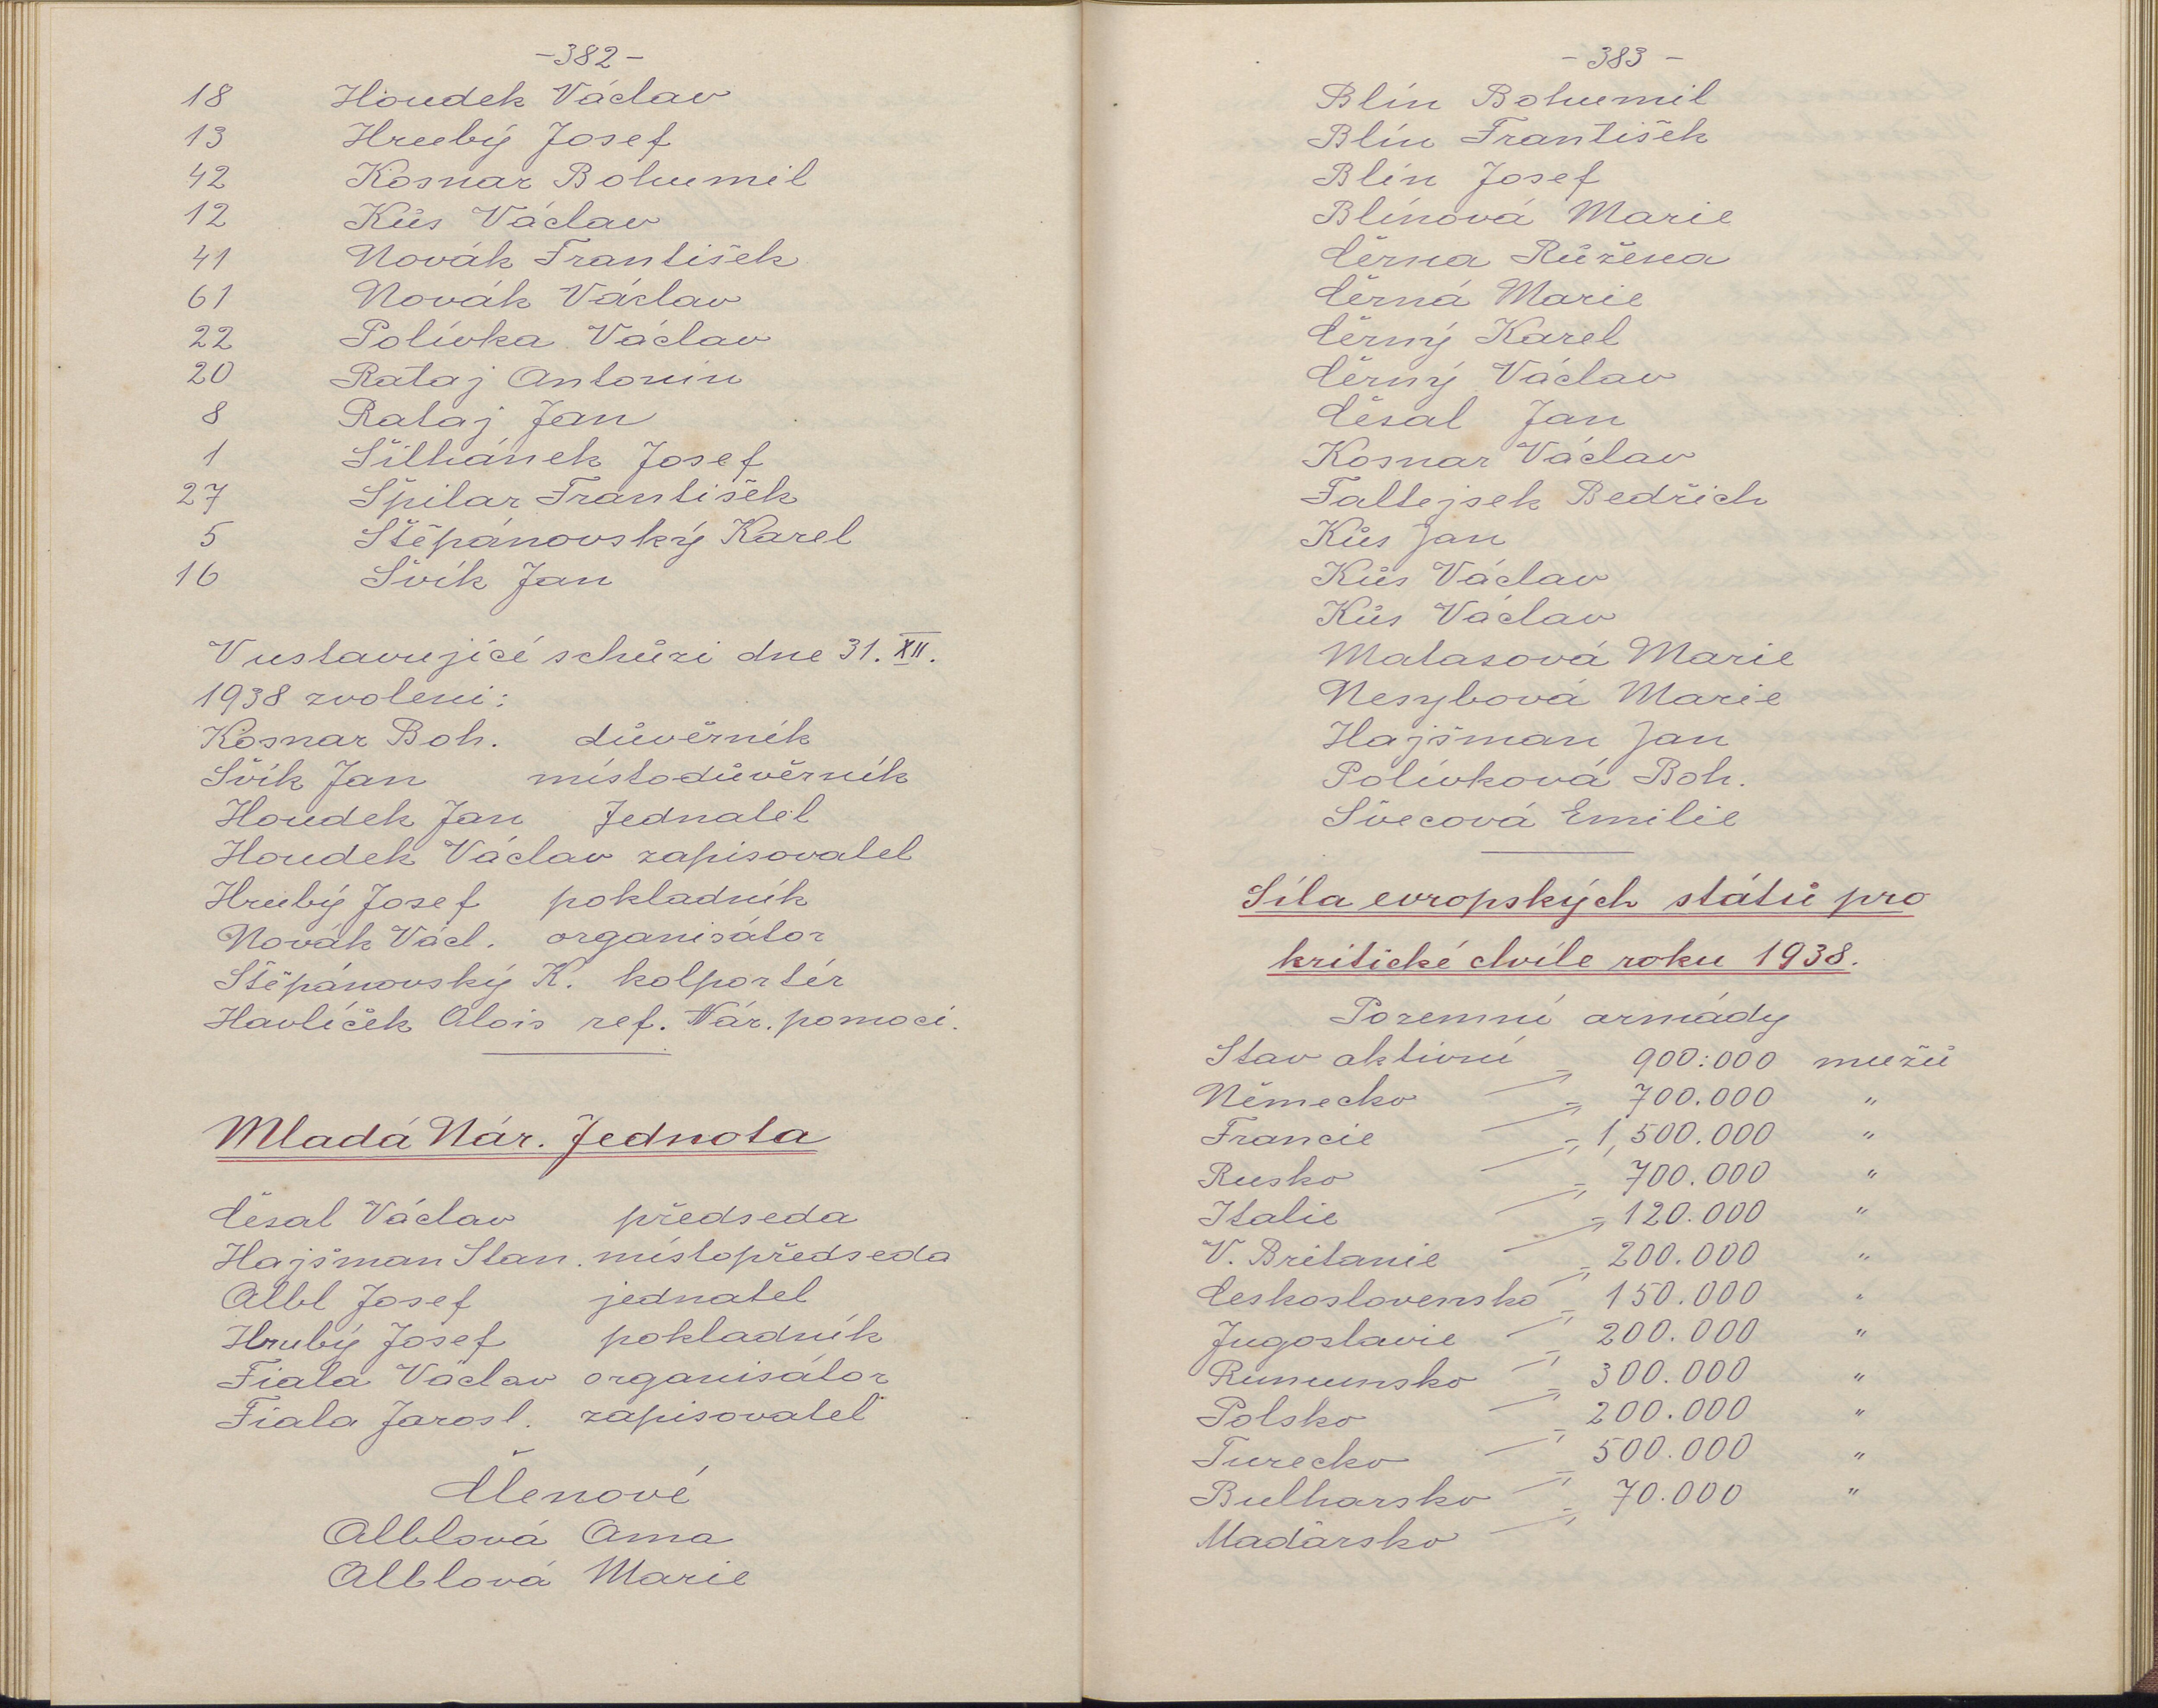 -382-
18 Houdek Václav
13 Hrubý Josef
42 Kosnar Bohumil
12 Kůs Václav
41 Novák František
61 Novák Václav
22 Polívka Václav
20 Rataj Antonín
8 Rataj Jan
1 Šilhánek Josef
27 Špilar František
5 Štěpánovský Karel
16 Švík Jan
V ustavující schůzi dne 31. XII.
1938 zvoleni:
Kosnar Boh. důvěrník
Švík Jan místodůvěrník
Houdek Jan Jednatel
Houdek Václav zapisovatel
Hrubý Josef pokladník
Novák Václ. organisátor
Štěpánovský K. kolportér
Havlíček Alois ref. Nár. pomoci.
Mladá Nár. Jednota
Česal Václav předseda
Hajšman Stan. místopředseda
Albl Josef jednatel
Hrubý Josef pokladník
Fiala Václav organisátor
Fiala Jarosl. zapisovatel
Členové
Alblová Anna
Alblová Marie
-383-
Blín Bohumil
Blín František
Blín Josef
Blínová Marie
Černa Růžena
Černá Marie
Černý Karel
Černý Václav
Česal Jan
Kosnar Václav
Faltejsek Bedřich
Kůs Jan
Kůs Václav
Kůs Václav
Matasová Marie
Nesybová Marie
Hajšman Jan
Polívková Boh.
Švecová Emilie
Síla evropských států pro
kritické chvíle roku 1938.
Pozemní armády
Stav aktivní - 900.000 mužů
Německo - 700.000 "
Francie - 1,500.000 "
Rusko - 700.000 "
Italie - 120.000 "
V. Britanie - 200.000 "
Československo - 150.000 "
Jugoslavie - 200.000 "
Rumunsko - 300.000 "
Polsko - 200.000 "
Turecko - 500.000 "
Bulharsko - 70.000 "
Maďarsko -